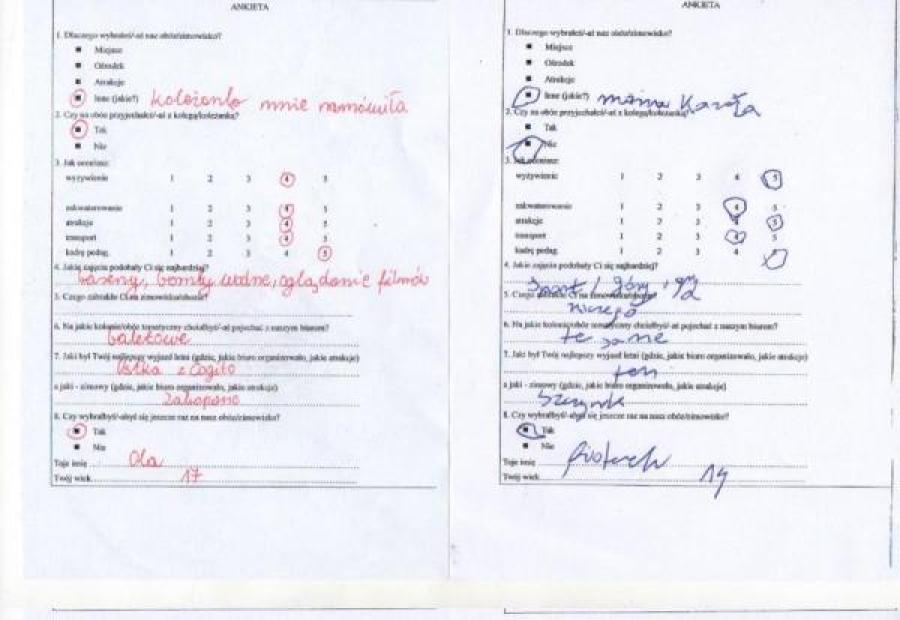 ANKIETA
1. Dlaczego wybrałeś/-aś nasz obóz/zimowisko?
Miejsce
Ośrodek
Atrakcje
Inne (jakie?) koleżanka mnie namówiła
2. Czy na obóz przyjechałeś/-aś z kolegą/koleżanką?
Tak
Nie
3. Jak oceniasz:
wyżywienie 1 2 3 4 5
zakwaterowanie 1 2 3 4 5
atrakcje 1 2 3 4 5
transport 1 2 3 4 5
kadrę pedag. 1 2 3 4 5
4. Jakie zajęcia podobały Ci się najbardziej?
baseny, bomby wodne, oglądanie filmów
5. Czego zabrakło Ci na zimowisku/obozie?
6. Na jakie kolonie/obóz tematyczny chciałbyś/-aś pojechać z naszym biurem?
baletowe
7. Jaki był Twój najlepszy wyjazd letni (gdzie, jakie biuro organizowało, jakie atrakcje)
Ustka z Cogito
a jaki - zimowy (gdzie, jakie biuro organizowało, jakie atrakcje)
Zakopane
8. Czy wybrałbyś/-abyś się jeszcze raz na nasz obóz/zimowisko?
Tak
Nie
Twoje imię Ola
Twój wiek 17
ANKIETA
1. Dlaczego wybrałeś/-aś nasz obóz/zimowisko?
Miejsce
Ośrodek
Atrakcje
Inne (jakie?) mama kazała
2. Czy na obóz przyjechałeś/-aś z kolegą/koleżanką?
Tak
Nie
3. Jak oceniasz:
wyżywienie 1 2 3 4 5
zakwaterowanie 1 2 3 4 5
atrakcje 1 2 3 4 5
transport 1 2 3 4 5
kadrę pedag. 1 2 3 4
4. Jakie zajęcia podobały Ci się najbardziej?
góry, gry
5. Czego zabrakło Ci na zimowisku/obozie?
niczego
6. Na jakie kolonie/obóz tematyczny chciałbyś/-aś pojechać z naszym biurem?
te same
7. Jaki był Twój najlepszy wyjazd letni (gdzie, jakie biuro organizowało, jakie atrakcje)
ten
a jaki - zimowy (gdzie, jakie biuro organizowało, jakie atrakcje)
Szczyrk
8. Czy wybrałbyś/-abyś się jeszcze raz na nasz obóz/zimowisko?
Tak
Nie
Twoje imię
Twój wiek 14